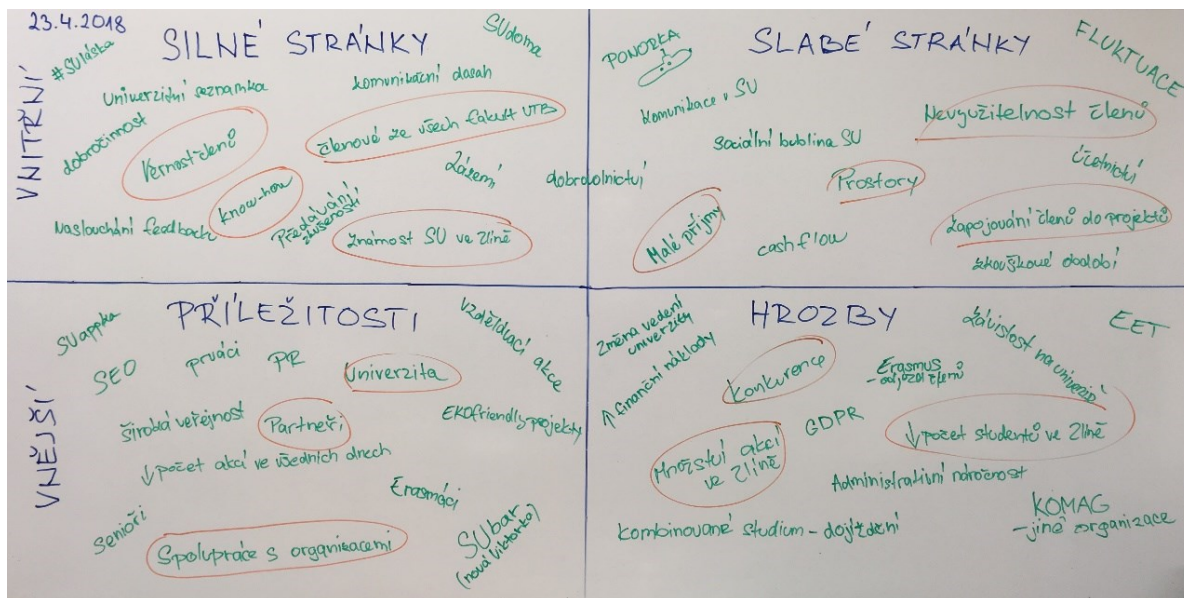 23.4.2018
SILNÉ STRÁNKY
SUdoma
#SUláska
Univerzitní seznamka
komunikační dosah
dobročinnost
Věrnost členů
členové ze všech fakult UTB
Zázemí
dobrovolnictví
know-how
Naslouchání feedback
Předávání
zkušeností
známost SU ve Zlíně
VNITŘNÍ
SLABÉ STRÁNKY
PONORKA
FLUKTUACE
komunikace v SU
Nevyužitelnost členů
sociální bublina SU
Účetnictví
Prostory
Malé příjmy
cashflow
Zapojování členů do projektů
zkouškové období
VNĚJŠÍ
PŘÍLEŽITOSTI
SUappka
SEO
prváci
PR
Univerzita
Vzdělávací akce
široká veřejnost
Partneři
EKOfriendly projekty
↓počet akcí ve všedních dnech
Erasmáci
Senioři
Spolupráce s organizacemi
SUbar
(nová Viktorka)
HROZBY
Změna vedení
univerzity
↑finanční náklady
Konkurence
Erasmus
-odjezd členů
Závislost na univerzitě
EET
GDPR
↓počet studentů ve Zlíně
Množství akcí
ve Zlíně
Administrativní náročnost
Kombinované studium - dojíždění
KOMAG
-jiné organizace